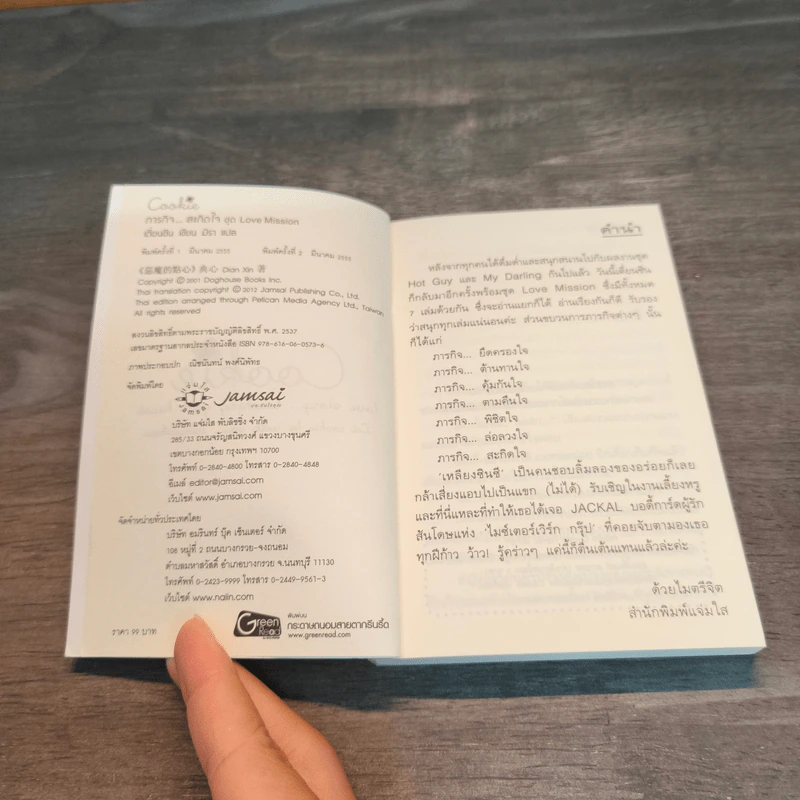 Cookie
ภารกิจ... สะกิดใจ ชุด Love Mission
เตี่ยนซิน เขียน มิรา แปล
พิมพ์ครั้งที่ 1 มีนาคม 2555 พิมพ์ครั้งที่ 2 มีนาคม 2555
《惡魔的點心》典心 Dian Xin 著
Copyright © 2001 Doghouse Books Inc.
Thai translation copyright © 2012 Jamsai Publishing Co., Ltd.
Thai edition arranged through Pelican Media Agency Ltd., Taiwan
All rights reserved
สงวนลิขสิทธิ์ตามพระราชบัญญัติลิขสิทธิ์ พ.ศ. 2537
เลขมาตรฐานสากลประจำหนังสือ ISBN 978-616-06-0573-6
ภาพประกอบปก ณิชนันทน์ พงศ์นิพัทธ
จัดพิมพ์โดย
แจ่มใส
jamsai
jamsai
บริษัท แจ่มใส พับลิชชิ่ง จำกัด
285/33 ถนนจรัญสนิทวงศ์ แขวงบางขุนศรี
เขตบางกอกน้อย กรุงเทพฯ 10700
โทรศัพท์ 0-2840-4800 โทรสาร 0-2840-4848
อีเมล์ editor@jamsai.com
เว็บไซต์ www.jamsai.com
จัดจำหน่ายทั่วประเทศโดย
บริษัท อมรินทร์ บุ๊ค เซ็นเตอร์ จำกัด
108 หมู่ที่ 2 ถนนบางกรวย-จงถนอม
ตำบลมหาสวัสดิ์ อำเภอบางกรวย จ.นนทบุรี 11130
โทรศัพท์ 0-2423-9999 โทรสาร 0-2449-9561-3
เว็บไซต์ www.naiin.com
ราคา 99 บาท
Green Read
พิมพ์บน
กระดาษถนอมสายตากรีนรี้ด
www.greenread.com
คำนำ
หลังจากทุกคนได้ดื่มด่ำและสนุกสนานไปกับผลงานชุด
Hot Guy และ My Darling กันไปแล้ว วันนี้เตี่ยนซิน
ก็กลับมาอีกครั้งพร้อมชุด Love Mission ซึ่งมีทั้งหมด
7 เล่มด้วยกัน ซึ่งจะอ่านแยกก็ได้ อ่านเรียงกันก็ดี รับรอง
ว่าสนุกทุกเล่มแน่นอนค่ะ ส่วนขบวนการภารกิจต่างๆ นั้น
ก็ได้แก่
ภารกิจ... ยึดครองใจ
ภารกิจ... ต้านทานใจ
ภารกิจ... คุ้มกันใจ
ภารกิจ... ตามคืนใจ
ภารกิจ... พิชิตใจ
ภารกิจ... ล่อลวงใจ
ภารกิจ... สะกิดใจ
'เหลียงซินซี' เป็นคนชอบลิ้มลองของอร่อยก็เลย
กล้าเสี่ยงแอบไปเป็นแขก (ไม่ได้) รับเชิญในงานเลี้ยงหรู
และที่นี่แหละที่ทำให้เธอได้เจอ JACKAL บอดี้การ์ดผู้รัก
สันโดษแห่ง 'ไมซ์เตอร์เวิร์ก กรุ๊ป' ที่คอยจับตามองเธอ
ทุกฝีก้าว ว้าว! รู้คร่าวๆ แค่นี้ก็ตื่นเต้นแทนแล้วล่ะค่ะ
ด้วยไมตรีจิต
สำนักพิมพ์แจ่มใส